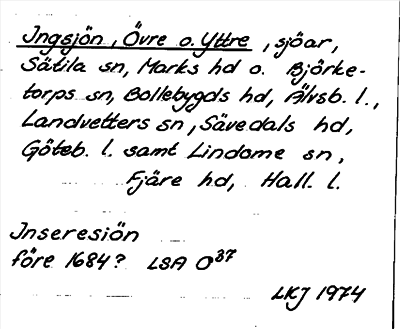 Ingsjön, Övre o. Yttre, sjöar,
Sätila sn, Marks hd o. Björke-
torps sn, Bollebygds hd, Älvsb. l.,
Landvetters sn, Sävedals hd,
Göteb. l. samt Lindome sn,
Fjäre hd, Hall. l.
Inseresiön
före 1684? LSA O37
LKJ 1974